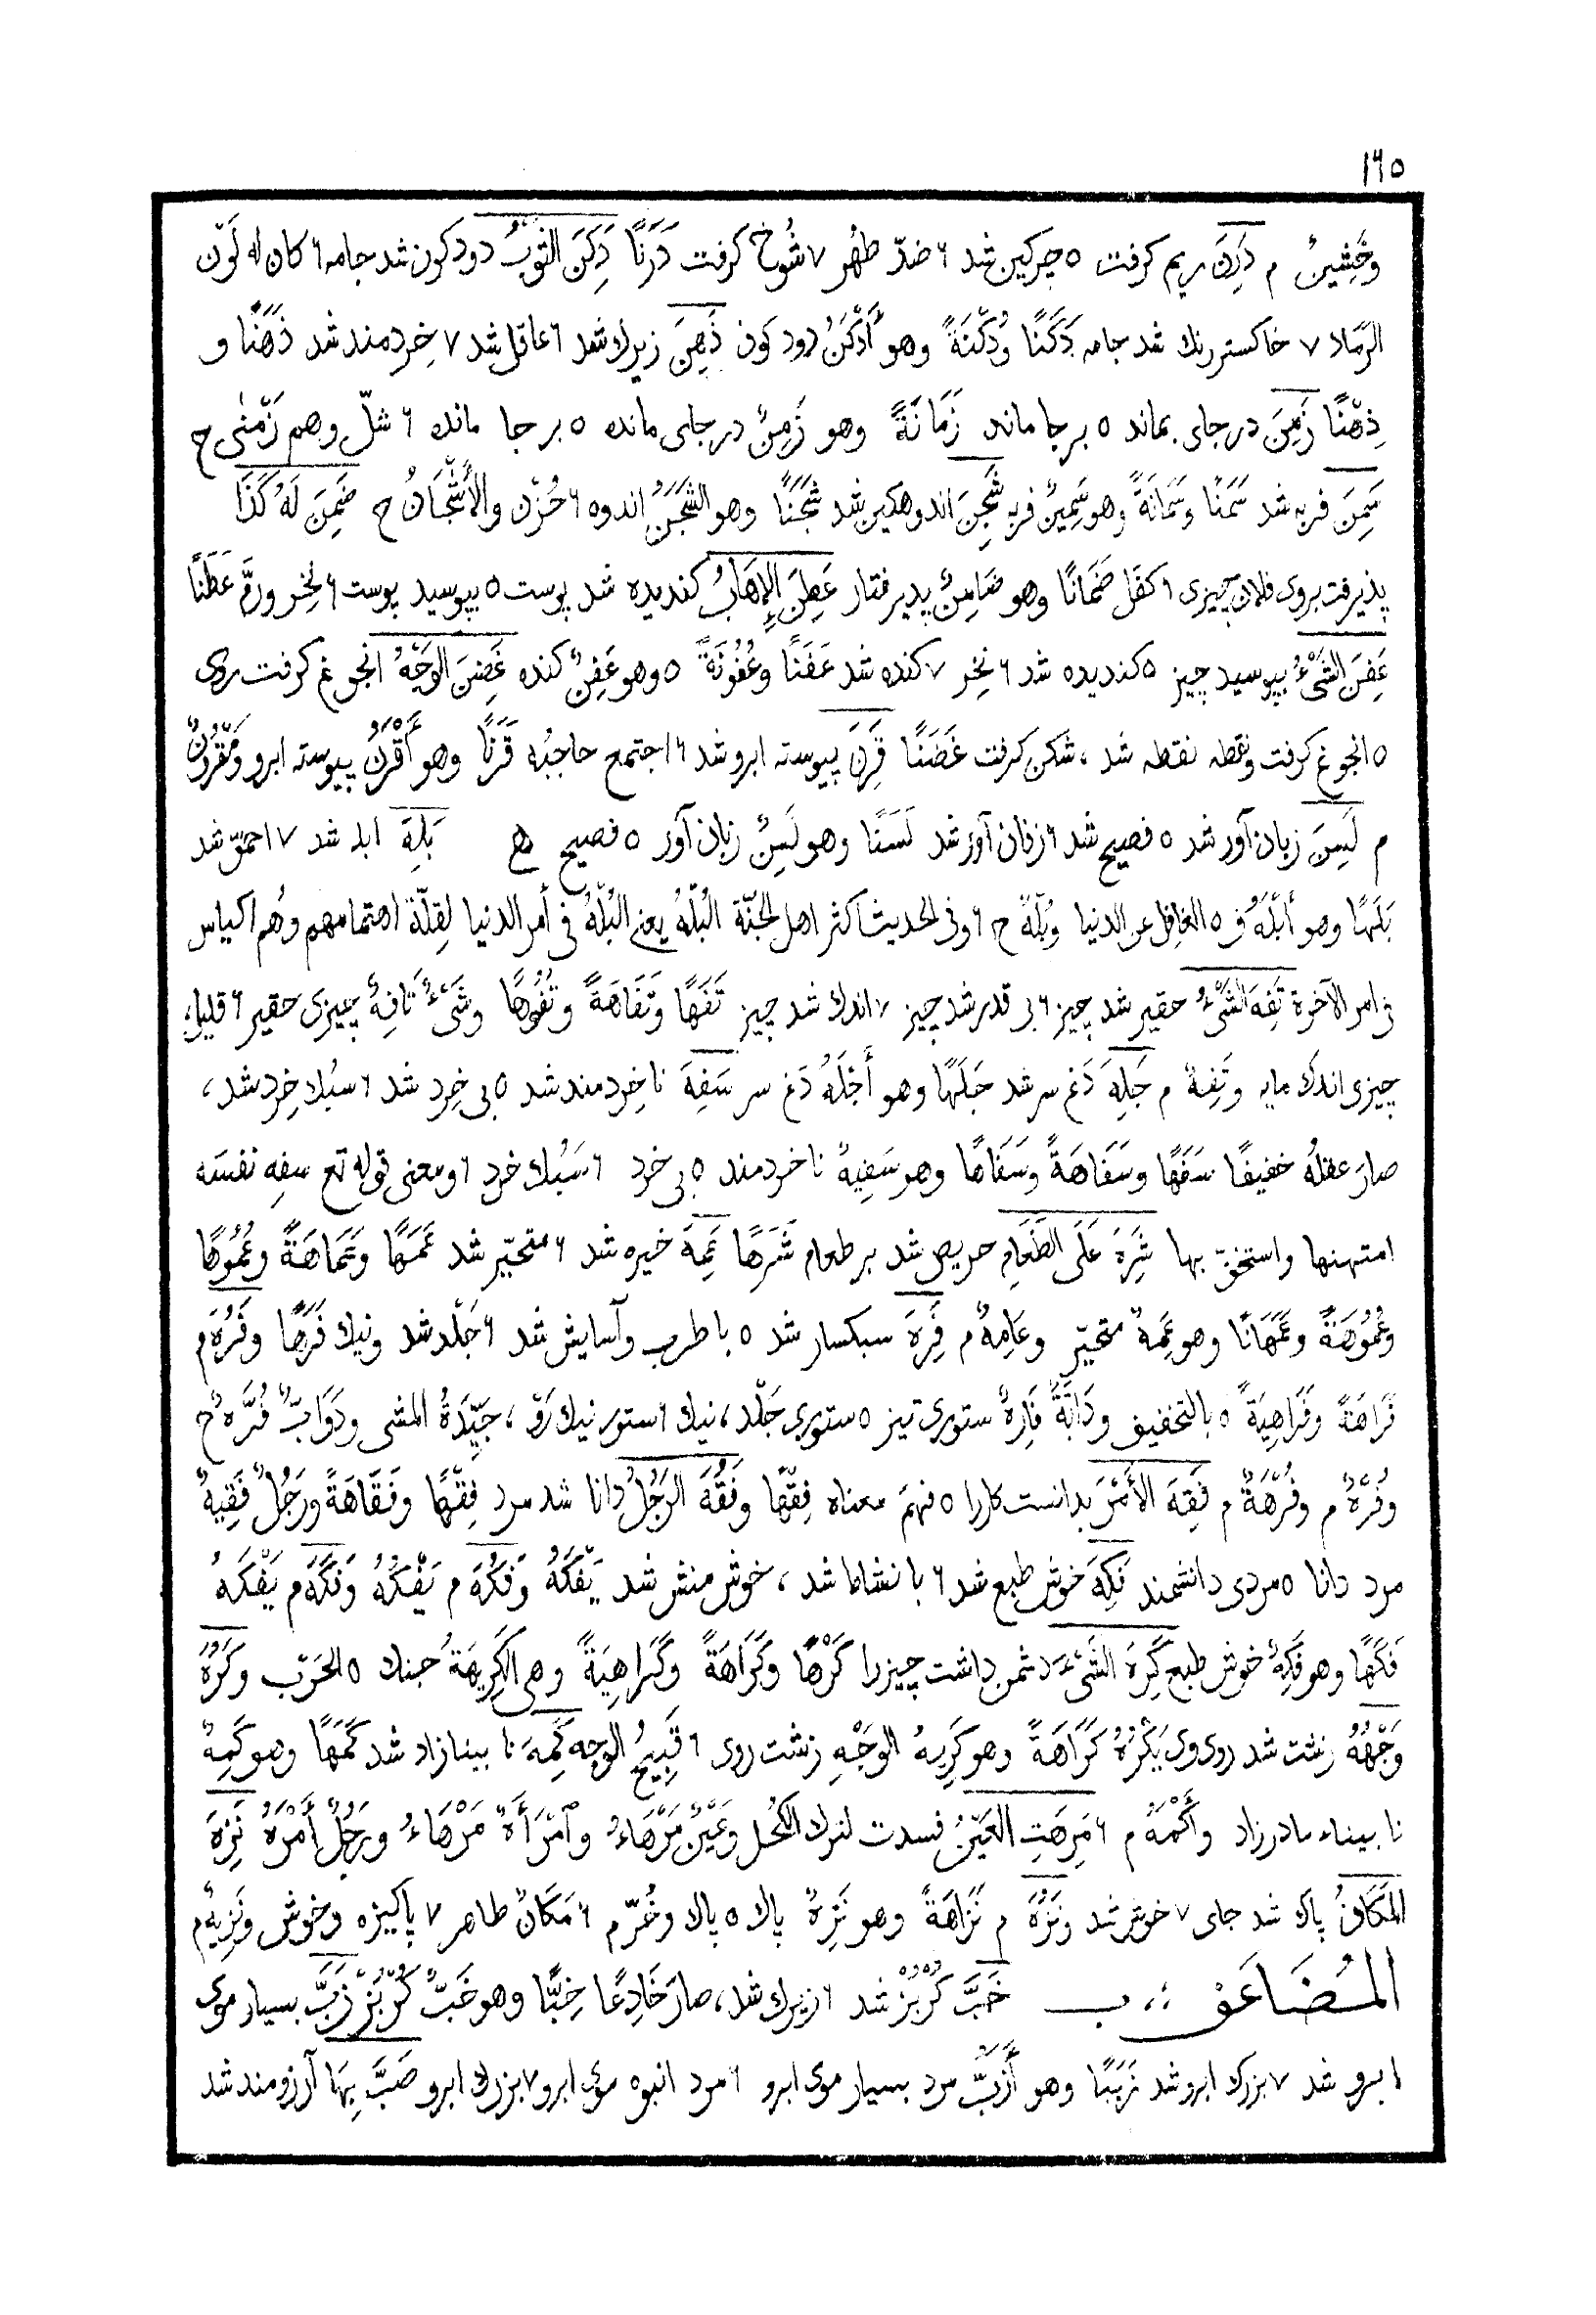 ١٦٥
وخَشِينٌ م دَرِنَ ریم کرفت ٥ چرکین شد ٦ ضدّ طهُر ٧ شُوخ کرفت دَرَنًا دَكَنَ الثوبُ دود کون شد جامه ٦ کان له لَوْن
الرّماد ٧ خاکستر رنك شد جامه دَكَنًا ودُكْنَةً وهو أَدْكَنُ دود کون ذَهِنَ زیرك شد ٦ عاقل شد ٧ خِردمند شد ذَهَنًا و
ذِهْنًا زَمِنَ درجای بماند ٥ برجا ماند زَمَانَةً وهو زَمِنٌ درجای مانده ٥ برجا مانده ٦ شلّ وهم زَمْنٰی ج
سَمِنَ فربه شد سَمَنًا وسَمَانَةً وهو سَمِينٌ فربه شَجِنَ اندوهکین شد شَجَنًا وهو الشَجَنُ اندوه ٦ حُزْن والأَشْجَانُ ج ضَمِنَ لَهُ كَذَا
پذیرفت بروی فلان چیزی ٦ كفل ضَمَانًا وهو ضَامِنٌ پذیرفتار عَطِنَ الإِهَابُ کندیده شد پوست ٥ بپوسید پوست ٦ نخِر ورمَّ عَطَنًا
عَفِنَ الشَیْءُ بپوسید چیز ٥ کندیده شد ٦ نخِر ٧ کنده شد عَفَنًا وعُفُونَةً ٥ وهو عَفِنٌ کنده غَضِنَ الوَجْهُ انجوغ کرفت روی
٥ انجوغ کرفت ونقطه نقطه شد ، شکن کرفت غَضَنًا قَرِنَ پیوسته ابرو شد ٦ اجتمع حاجبُه قَرَنًا وهو أَقْرَنُ پیوسته ابرو ومَقْرُونٌ
م لَسِنَ زبان آور شد ٥ فصیح شد ٦ زفان آور شد لَسَنًا وهو لَسِنٌ زبان آور ٥ فصیح ه بَلِهَ ابله شد ٧ احمق شد
بَلَهًا وهو أَبْلَهُ ف ٥ الغافل عن الدنیا وبُلْهٌ ج ٦ وفی الحدیث اکثر اهل الجنّة البُلْهُ یعنی البُلْهُ فی أمر الدنیا لِقِلّة اهتمامهم وهُم اکیاس
فی امر الآخرة تَفِهَ الشَیْءُ حقیر شد چیز ٦ بی قدر شد چیز ٧ اندك شد چیز تَفَهًا وتَفَاهَةً وتُفُوهًا وشَیْءٌ تَافِهٌ چیزی حقیر ٦ قلیل ،
چیزی اندك مایه وتَفِهٌ م جَلِهَ دَغ سر شد جَلَهًا وهو أَجْلَهُ دَغ سر سَفِهَ ناخِردمند شد ٥ بی خِرد شد ٦ سبُك خِرد شد ،
صارَ عقلهُ خفیفًا سَفَهًا وسَفَاهَةً وسَفَاهًا وهو سَفِيهٌ ناخردمند ٥ بی خرد ٦ سَبُك خرد ٦ ومعنی قوله تع سفِه نفسَه
امتهنها واستخفّ بها شَرِهَ عَلَى الطَعَامِ حریص شد بر طعام شَرَهًا عَمِهَ خیره شد ٦ متحیّر شد عَمَهًا وعَمَاهَةً وعُمُوهًا
وعُمُوهَةً وعَمَهَانًا وهو عَمِهٌ متحیّر وعَامِهٌ م فَرِهَ سبکسار شد ٥ با طرب وآسایش شد ٦ جَلْد شد ونیك فَرَهًا وفَرُهَ م
فَرَاهَةً وفَرَاهِيَةً ٥ بالتخفیف ودَابَّةٌ فَارِهٌ ستوری تیز ٥ ستوری جَلْد ، نیك ٦ ستور نیك رَوْ ، جَيِّدَةُ المشی ودَوَابُّ فُرَّهٌ ج
وفُرْهٌ م وفُرْهَةٌ م فَقِهَ الأَمْرَ بدانست کار را ٥ فهمَ معناه فِقْهًا وفَقُهَ الرَجُلُ دانا شد مرد فِقْهًا وفَقَاهَةً ورَجُلٌ فَقِيهٌ
مرد دانا ٥ مردی دانشمند فَكِهَ خوش طبع شد ٦ با نشاط شد ، خوش منش شد يَفْكَهُ وفَكُهَ م يَفْكُهُ وفَكَهَ م يَفْكَهُ
فَكَهًا وهو فَكِهٌ خوش طبع كَرِهَ الشَیْءَ دشمن داشت چیز را كَرْهًا وكَرَاهَةً وكَرَاهِيَةً وهی الكَرِيهَةُ جنك ٥ الحَرْب وكَرُهَ
وَجْهُهُ زشت شد روی وی يَكْرُهُ كَرَاهَةً وهو كَرِيهُ الوَجْهِ زشت روی ٦ قَبِيحُ الوجه كَمِهَ نابینا زاد شد كَمَهًا وهو كَمِهٌ
نابیناء مادرزاد وأَكْمَهُ م ٦ مَرِهَتِ العَيْنُ فسدت لترك الكُحل وعَيْنٌ مَرْهَاءُ وٱمْرَأَةٌ مَرْهَاءُ ورَجُلٌ أَمْرَهُ نَزِهَ
المَكَانُ پاك شد جای ٧ خوش شد ونَزُهَ م نَزَاهَةً وهو نَزِهٌ پاك ٥ پاك وخُرّم ٦ مَكَانٌ طاهر ٧ پاکیزه وخوش ونَزِيهٌ م
المُضَاعَف ب خَبَّ كُرْبُزْ شد ٦ زیرك شد ، صارَ خَادِعًا خِبًّا وهو خَبٌّ كُرْبُزْ زَبَّ بسیار موی
ابرو شد ٧ بزرك ابرو شد زَبَبًا وهو أَزَبُّ مرد بسیار موی ابرو ٦ مرد انبوه موی ابرو ٧ بزرك ابرو صَبَّ بِهَا آرزومند شد